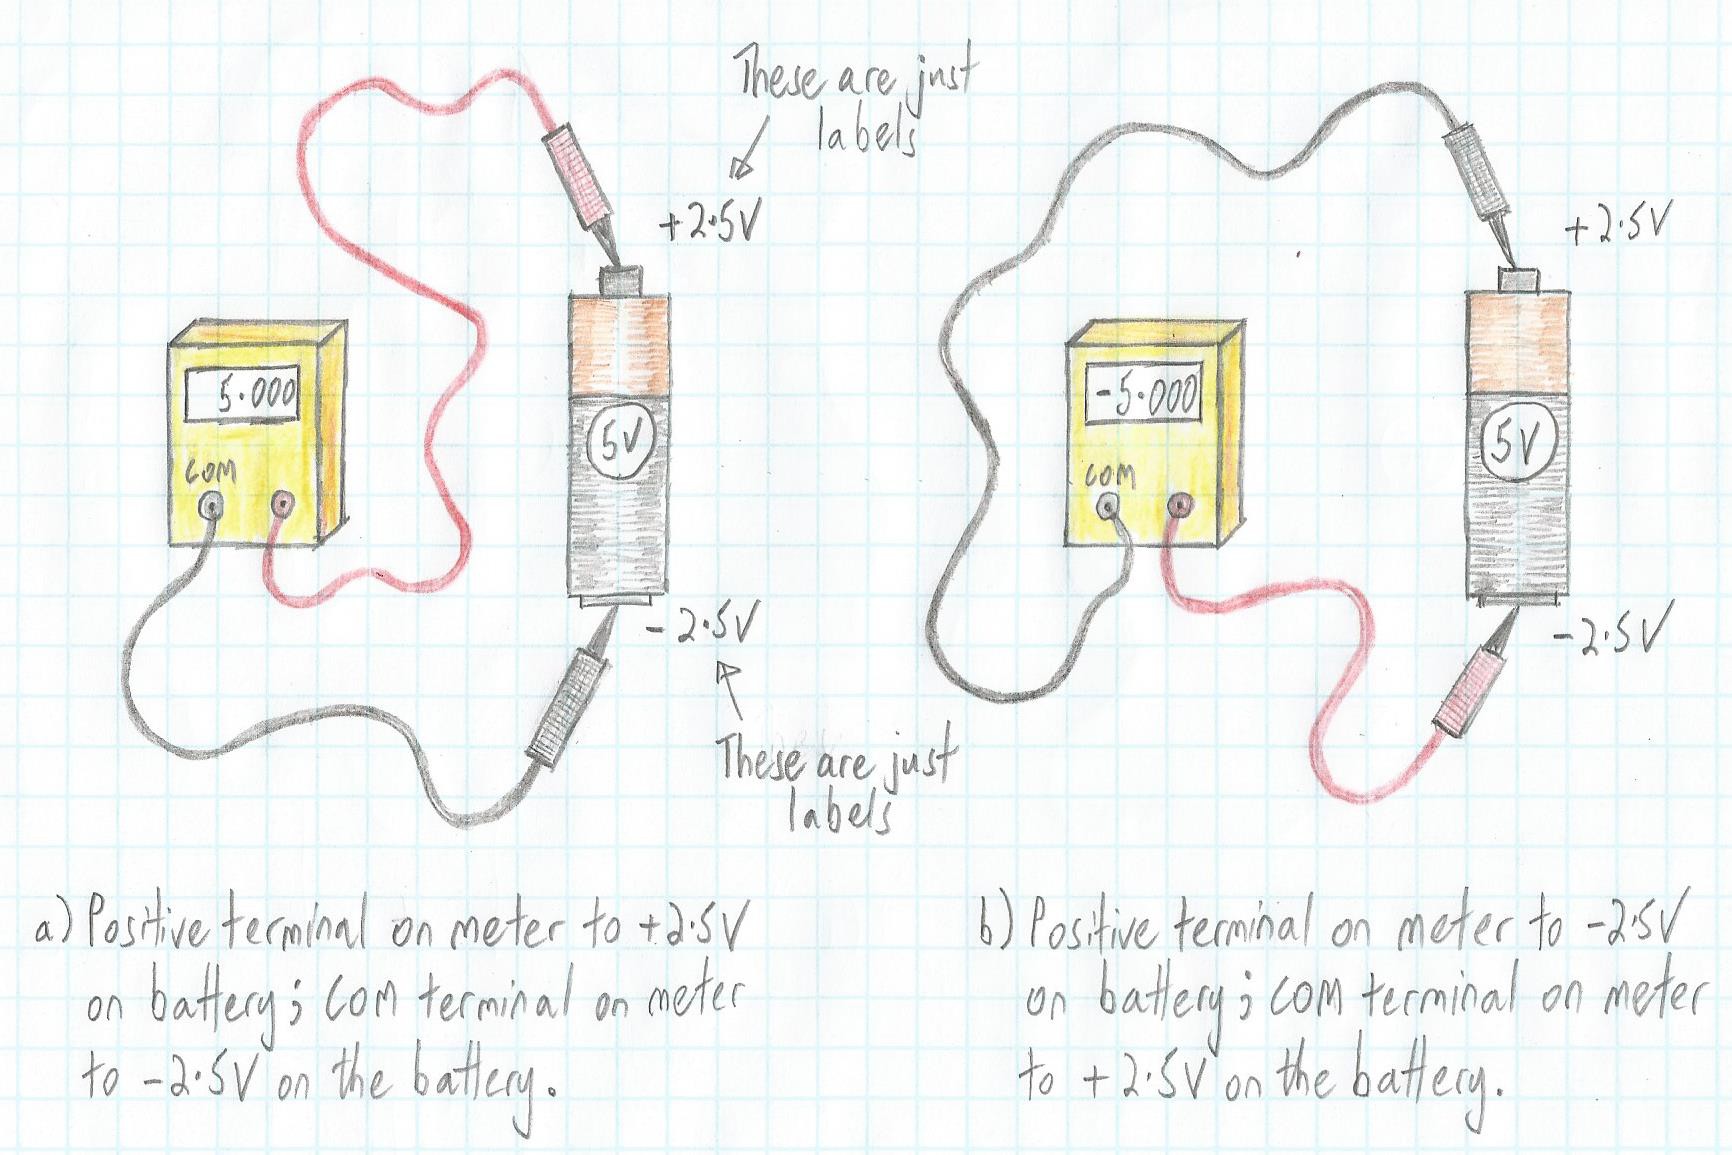 These are just
labels
+2.5V
5.000
COM
5V
-2.5V
These are just
labels
a) Positive terminal on meter to +2.5V
on battery; COM terminal on meter
to -2.5V on the battery.
+2.5V
-5.000
COM
5V
-2.5V
b) Positive terminal on meter to -2.5V
on battery; COM terminal on meter
to +2.5V on the battery.